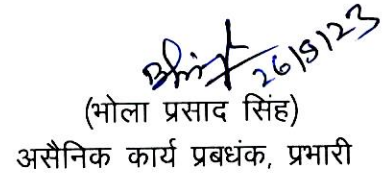 26/9/23
(भोला प्रसाद सिंह)
असैनिक कार्य प्रबधंक, प्रभारी